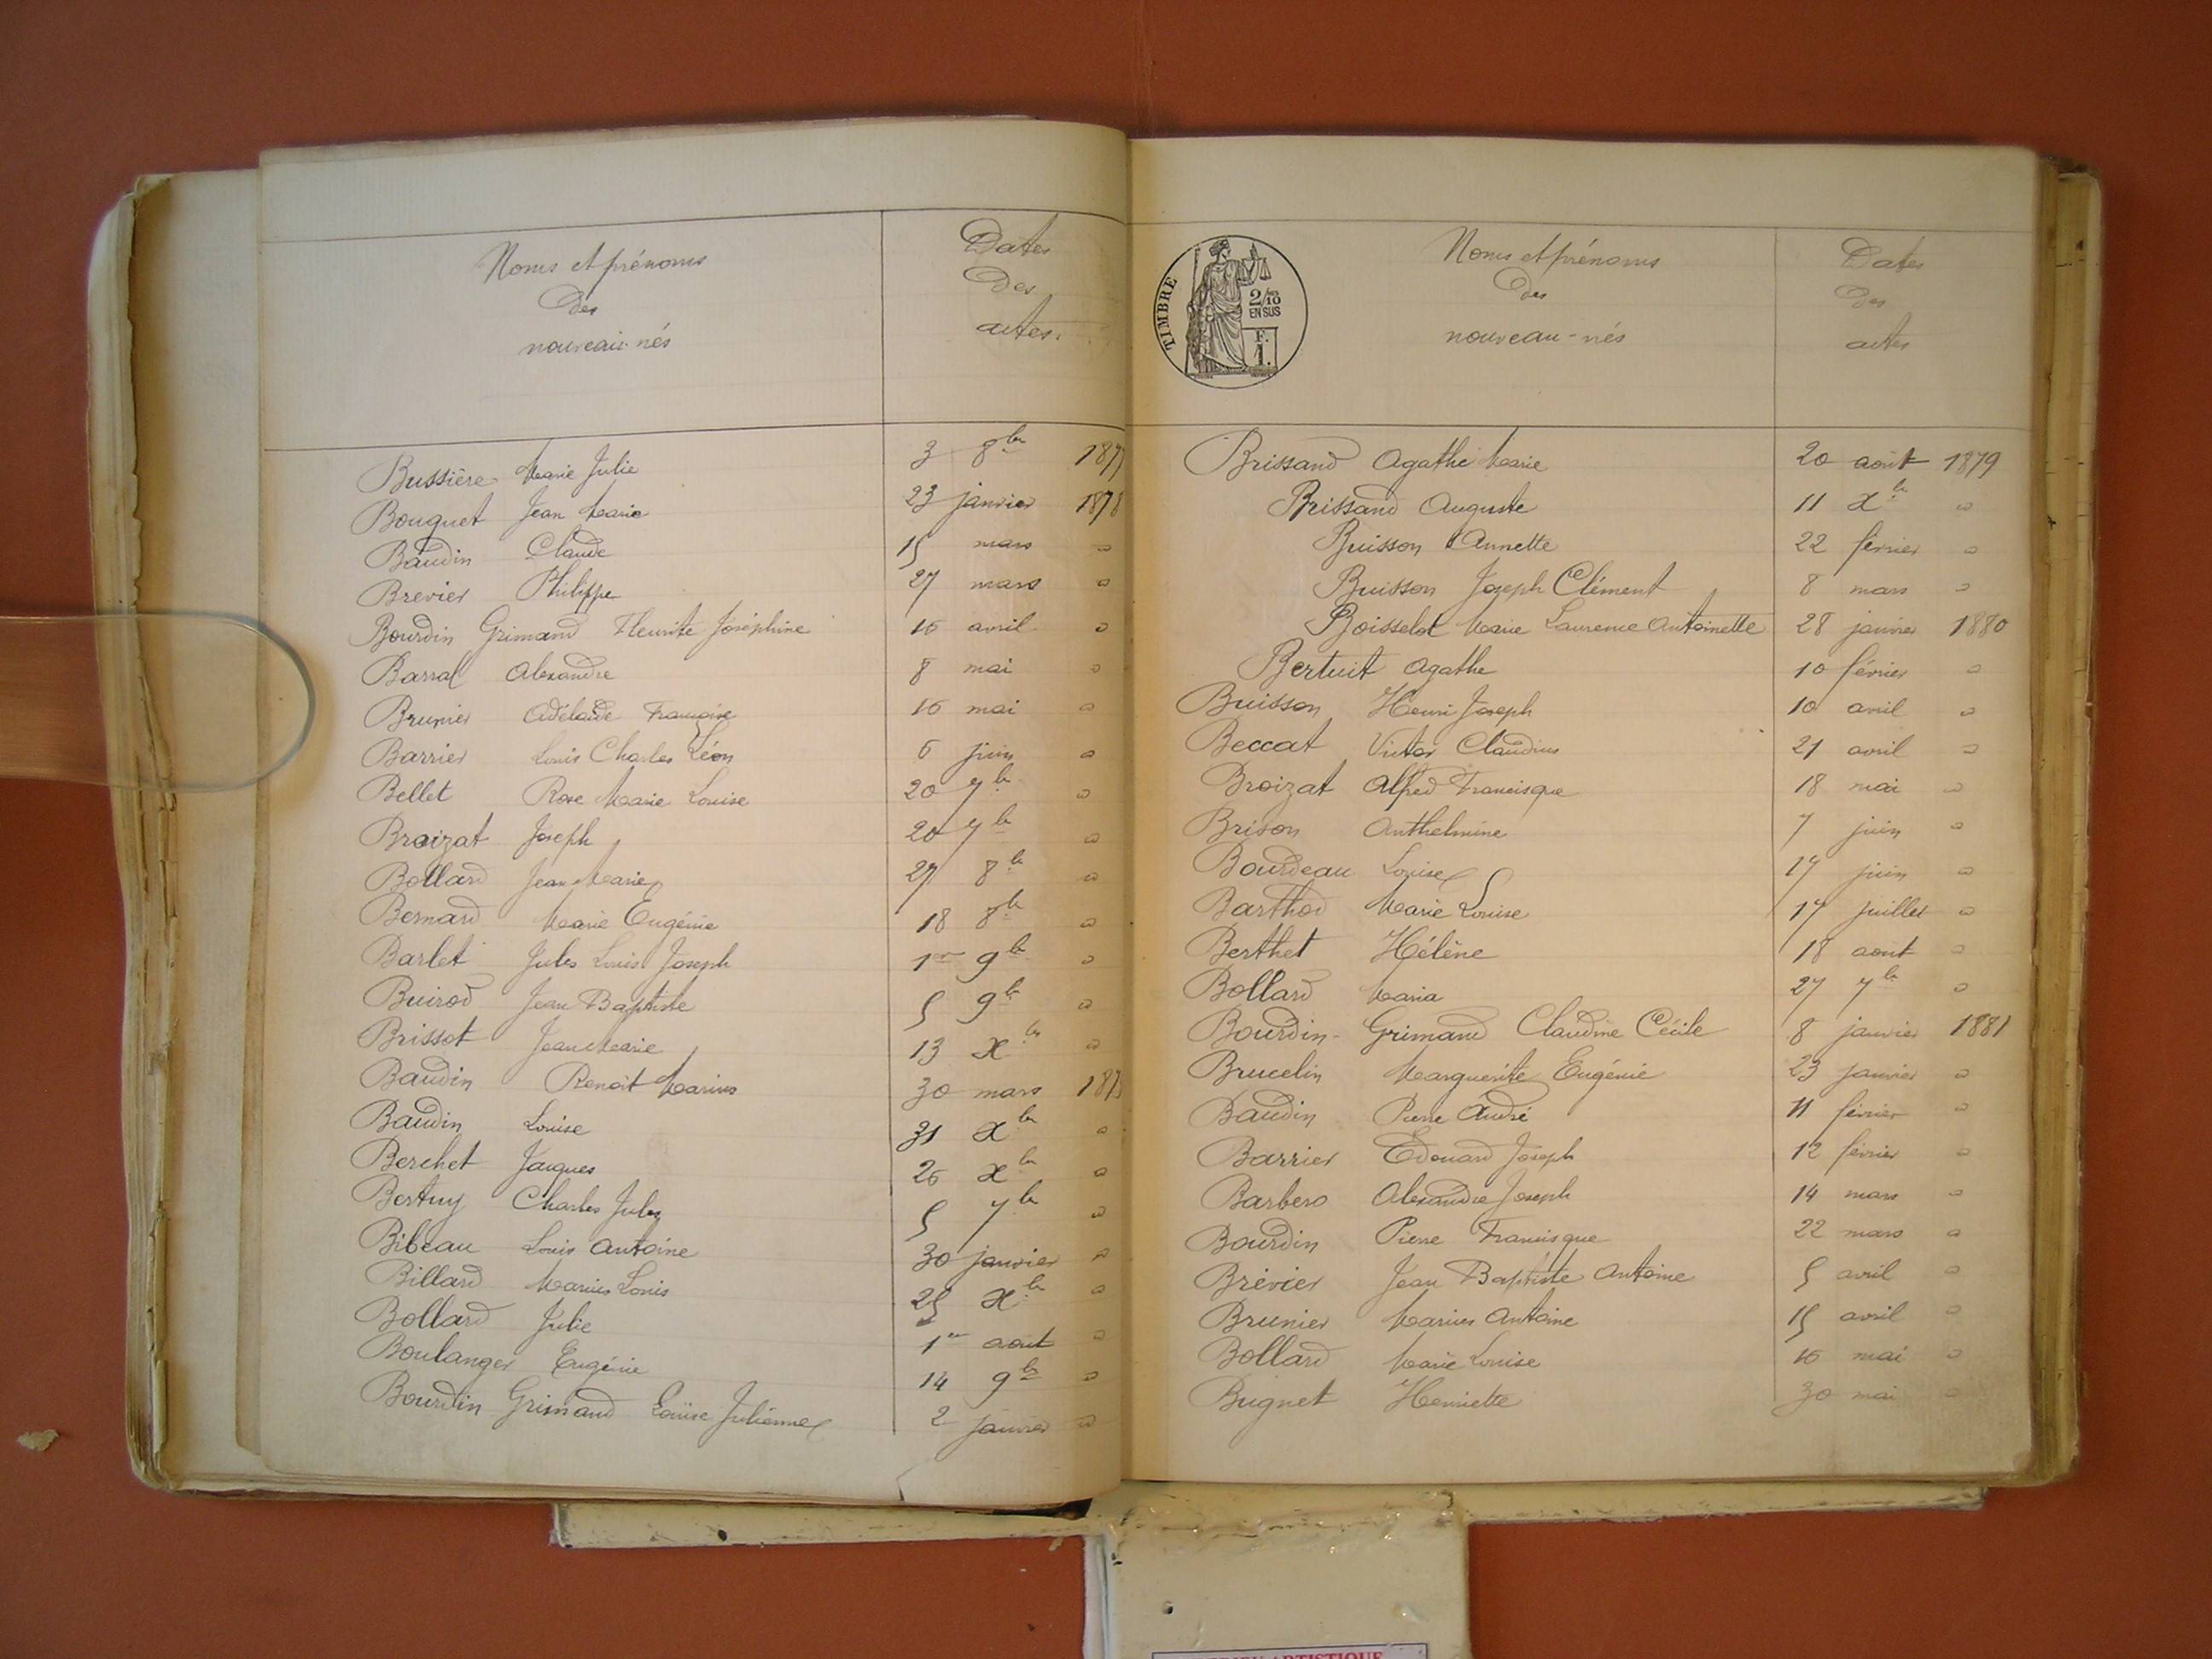 Noms et prénoms
des
nouveau-nés
Dates
des
actes.
Bussière Marie Julie 3 8bre 1877
Bouquet Jean Marie 23 janvier 1878
Baudin Claude 15 mars "
Brevier Philippe 27 mars "
Bourdin Grimaud Fleurite Joséphine 16 avril "
Barral Alexandre 8 mai "
Brunier Adélaïde Françoise 16 mai "
Barrier Louis Charles Léon 6 juin "
Bellet Rose Marie Louise 20 7bre "
Broizat Joseph 20 7bre "
Bollard Jean Marie 27 8bre "
Bernard Marie Eugénie 18 8bre "
Barlet Jules Louis Joseph 1er 9bre "
Buirod Jean Baptiste 5 9bre "
Brissot Jean Marie 13 Xbre "
Baudin Benoit Marius 30 mars
Baudin Louise 31 Xbre "
Berchet Jacques 26 Xbre "
Bertuy Charles Jules 5 7bre "
Bibeau Louis Antoine 30 janvier "
Billard Marius Louis 25 Xbre "
Bollard Julie 1er aout "
Boulanger Eugénie 14 9bre "
Bourdin Grimaud Louise Julienne 2 janvier "
TIMBRE
2/10 EN SUS
F. 1.
Noms et prénoms
des
nouveau-nés
Dates
des
actes
Brissaud Agathe Marie 20 août 1879
Brissaud Auguste 11 Xbre "
Buisson Annette 22 février "
Buisson Joseph Clément 8 mars "
Boisselot Marie Laurence Antoinette 28 janvier 1880
Bertuit Agathe 10 février "
Buisson Henri Joseph 10 avril "
Beccat Victor Claudius 21 avril "
Broizat Alfred Francisque 18 mai "
Brison Anthelmine 7 juin "
Bourdeau Louise 17 juin "
Barthod Marie Louise 17 juillet "
Berthet Hélène 18 aout "
Bollard Maria 27 7bre "
Bourdin-Grimaud Claudine Cécile 8 janvier 1881
Brucelin Marguerite Eugénie 23 janvier "
Baudin Pierre André 11 février "
Barrier Edouard Joseph 12 février "
Barbero Alexandre Joseph 14 mars "
Bourdin Pierre Francisque 22 mars "
Brévier Jean Baptiste Antoine 5 avril "
Brunier Marius Antoine 15 avril "
Bollard Marie Louise 16 mai "
Bugnet Henriette 30 mai "